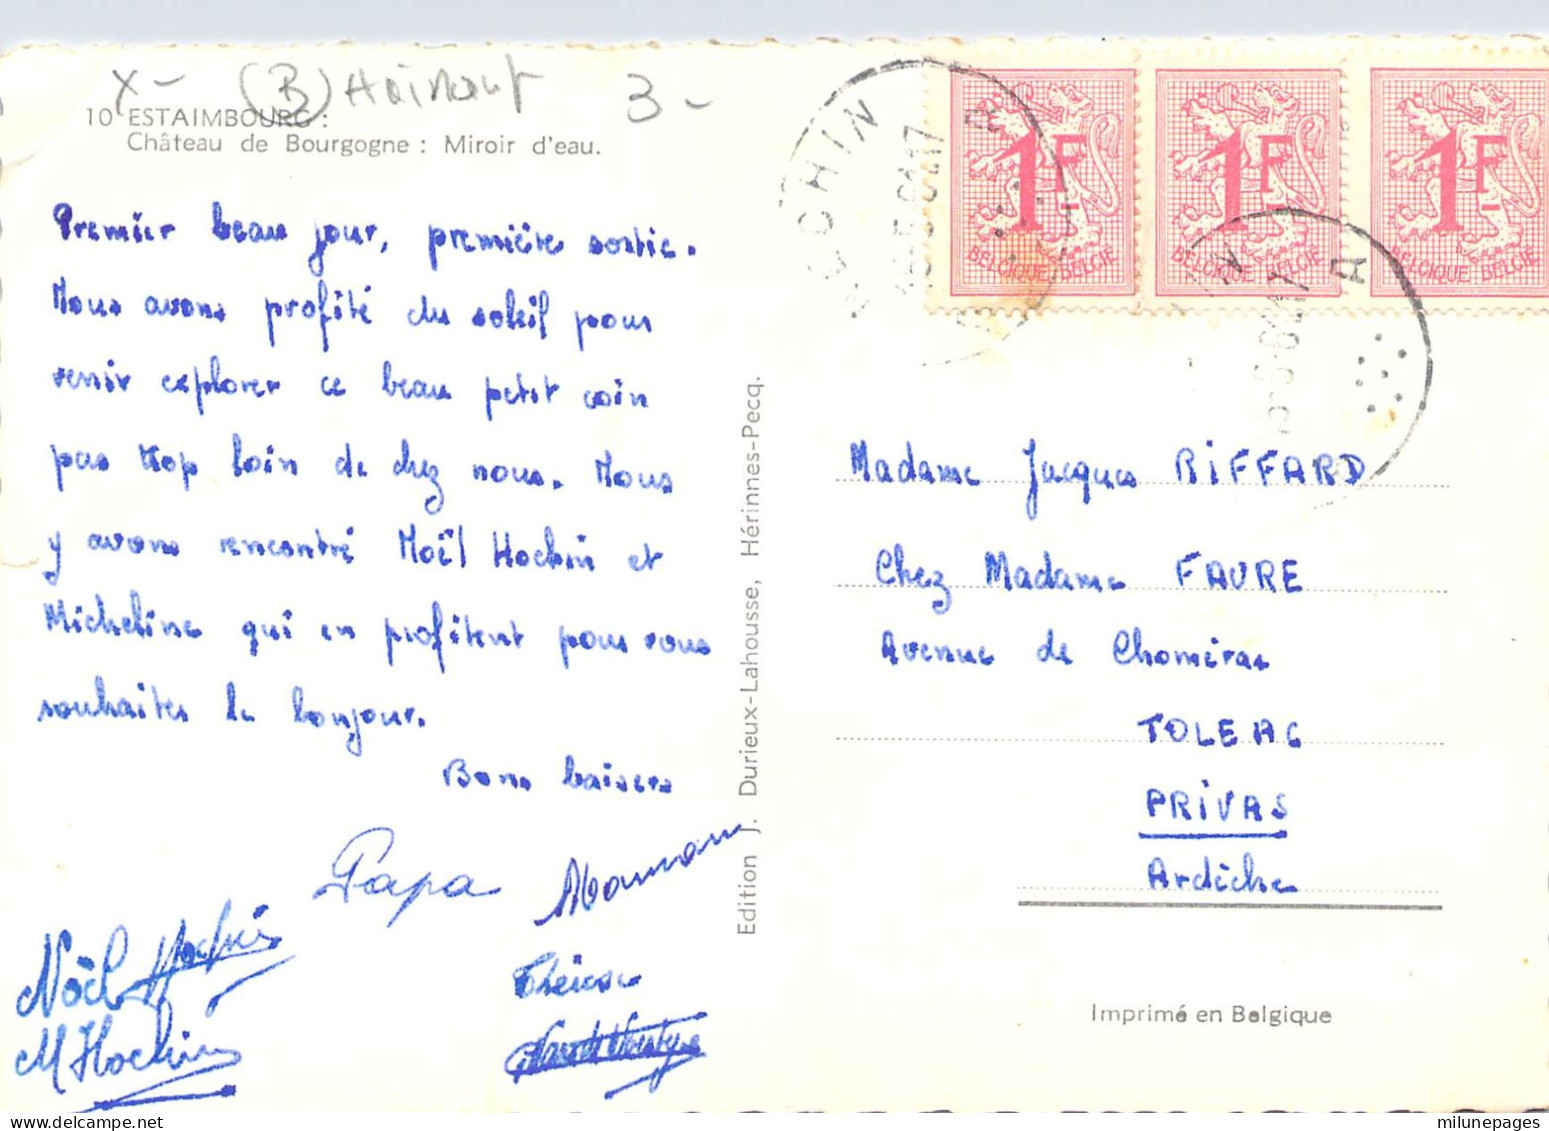 X - (B) Hainaut 3 -
10 ESTAIMBOURG :
Château de Bourgogne : Miroir d'eau.
Premier beau jour, première sortie.
Nous avons profité du soleil pour
venir explorer ce beau petit coin
pas trop loin de chez nous. Nous
y avons rencontré Noël Hochin et
Micheline qui en profitent pour vous
souhaiter le bonjour.
Bons baisers
Papa Maman
Noël Hochin
Thérèse
M Hochin
Edition J. Durieux-Lahousse, Hérinnes-Pecq.
NECHIN
A
1F
BELGIQUE BELGIË
1F
BELGIQUE BELGIË
1F
BELGIQUE BELGIË
A
Madame Jacques RIFFARD
Chez Madame FAURE
Avenue de Chomérac
TOLEAC
PRIVAS
Ardèche
Imprimé en Belgique
milunepages